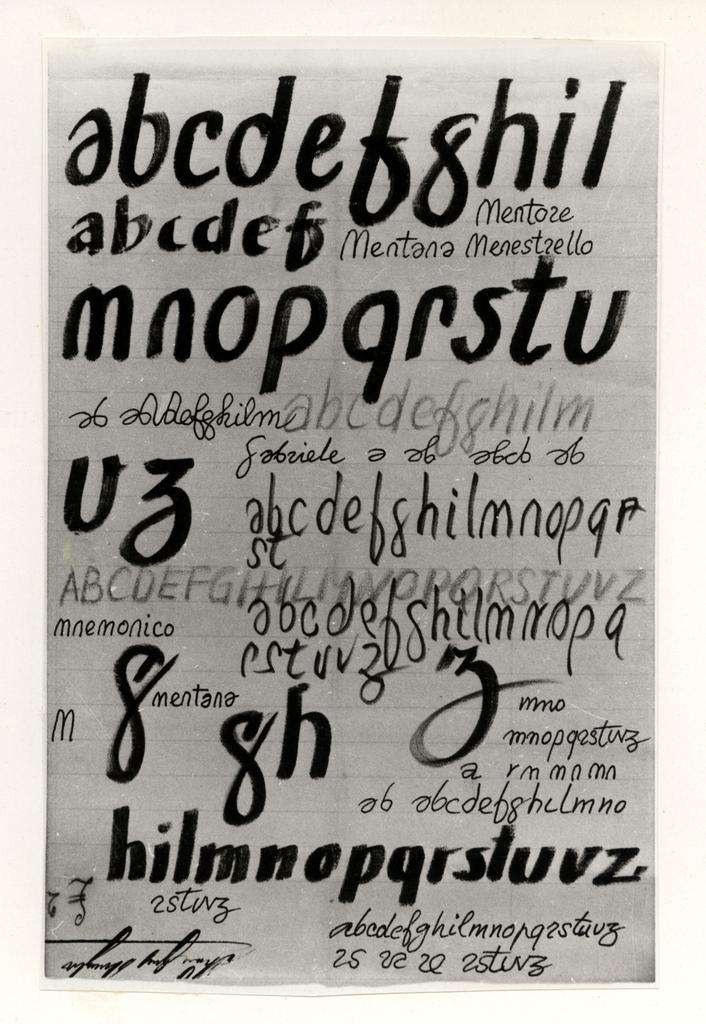 abcdefghil
abcdef
Mentore
Mentana Menestrello
mnopqrstu
ab abcdefghilm
abcdefghilm
vz
Gabriele a ab abcb ab
abcdefghilmnopqr
st
ABCDEFGHILMNOPQRSTUVZ
mnemonico
abcdefghilmnopq
rstuvz
g
mentana
z
M
gh
mno
mnopqrstuvz
a rm mn mn
ab abcdefghilmno
hilmnopqrstuvz
rstuvz
abcdefghilmnopqrstuvz
rs va re rstuvz